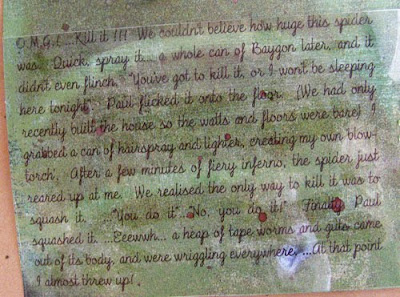 O.M.G.! ...Kill it !!! We couldn't believe how huge this spider
was. Quick, spray it.... a whole can of Baygon later, and it
didn't even flinch. "You've got to kill it, or I won't be sleeping
here tonight". Paul flicked it onto the floor. (We had only
recently built the house so the walls and floors were bare) I
grabbed a can of hairspray and lighter, creating my own blow-
torch. After a few minutes of fiery inferno, the spider just
reared up at me. We realised the only way to kill it was to
squash it. ...."You do it"..."No, you do it!" Finally Paul
squashed it. ....Eeewwh... a heap of tape worms and guts came
out of its body, and were wriggling everywhere. ....At that point
I almost threw up!.